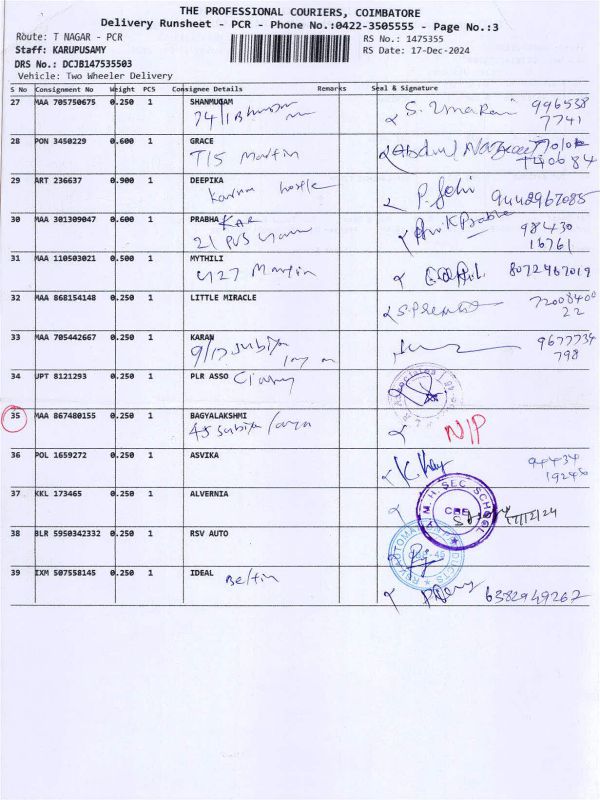 THE PROFESSIONAL COURIERS, COIMBATORE
Delivery Runsheet - PCR - Phone No.:0422-3505555 - Page No.:3
Route: T NAGAR - PCR
RS No.: 1475355
Staff: KARUPUSAMY
RS Date: 17-Dec-2024
DRS No.: DCJB147535503
Vehicle: Two Wheeler Delivery
S No Consignment No Weight PCS Consignee Details Remarks Seal & Signature
27 MAA 705750675 0.250 1 SHANMUGAM
74/1 S. Umarani 996538
7741
28 PON 3450229 0.600 1 GRACE
T15 Martin Abdul
740684
29 ART 236637 0.900 1 DEEPIKA
hostle 9442967085
30 MAA 301309047 0.600 1 PRABHA KAR
21 PVS 98430
16761
31 MAA 110503021 0.500 1 MYTHILI
427 Martin 8072467019
32 MAA 868154148 0.250 1 LITTLE MIRACLE
7200840
22
33 MAA 705442667 0.250 1 KARAN
9/17 subiya 9677734
798
34 UPT 8121293 1 PLR ASSO
35 MAA 867480155 0.250 1 BAGYALAKSHMI
45 subiya N/P
36 POL 1659272 0.250 1 ASVIKA
94434
19248
37 KKL 173465 0.250 1 ALVERNIA
M. H. SEC. SCHOOL
CBE
17/12/24
38 BLR 5950342332 0.250 1 RSV AUTO
39 IXM 507558145 0.250 1 IDEAL
6382949262